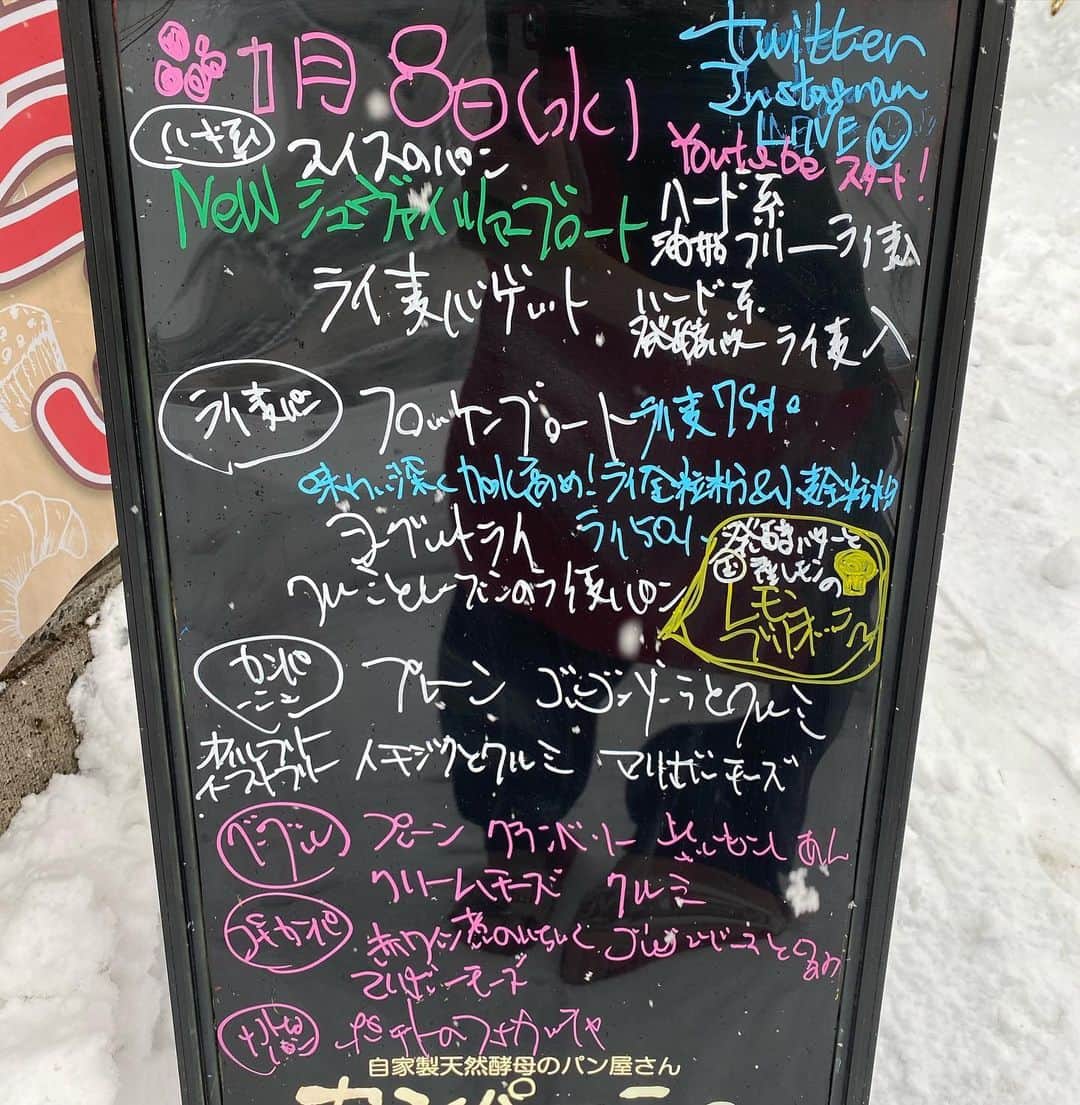 1月8日(水)
twitter
Instagram
LINE@
Youtube スタート!
ハード系
スイスのパン
New シュヴァイツァーブロート
ハード系
油脂フリー ライ麦入
ライ麦バゲット
ハード系
発酵バター ライ麦入
ライ麦パン
フロッケンブロート ライ麦75%
味わい深く加水高め!ライ全粒粉&小麦全粒粉
ヨーグルトライ ライ50%
クルミとレーズンのライ麦パン
発酵バターと
国産レモンの
レモン
ブリオッシュ
カンパーニュ
プレーン ゴルゴンゾーラとクルミ
オイルフリー
イーストフリー
イチジクとクルミ マリボーチーズ
ベーグル
プレーン クランベリー あん
クリームチーズ クルミ
プチカンパ
赤ワイン煮のいちじく
マリボーチーズ
ポテトのフォカッチャ
自家製天然酵母のパン屋さん